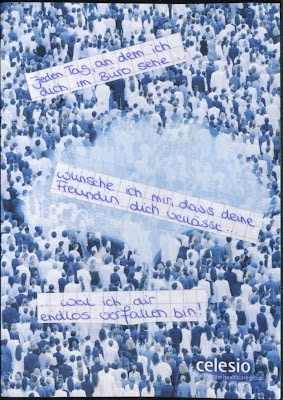 Jeden Tag, an dem ich
dich im Büro sehe...
wünsche ich mir, dass deine
Freundin dich verlässt...
... weil ich dir
endlos verfallen bin!
celesio
the healthcare group